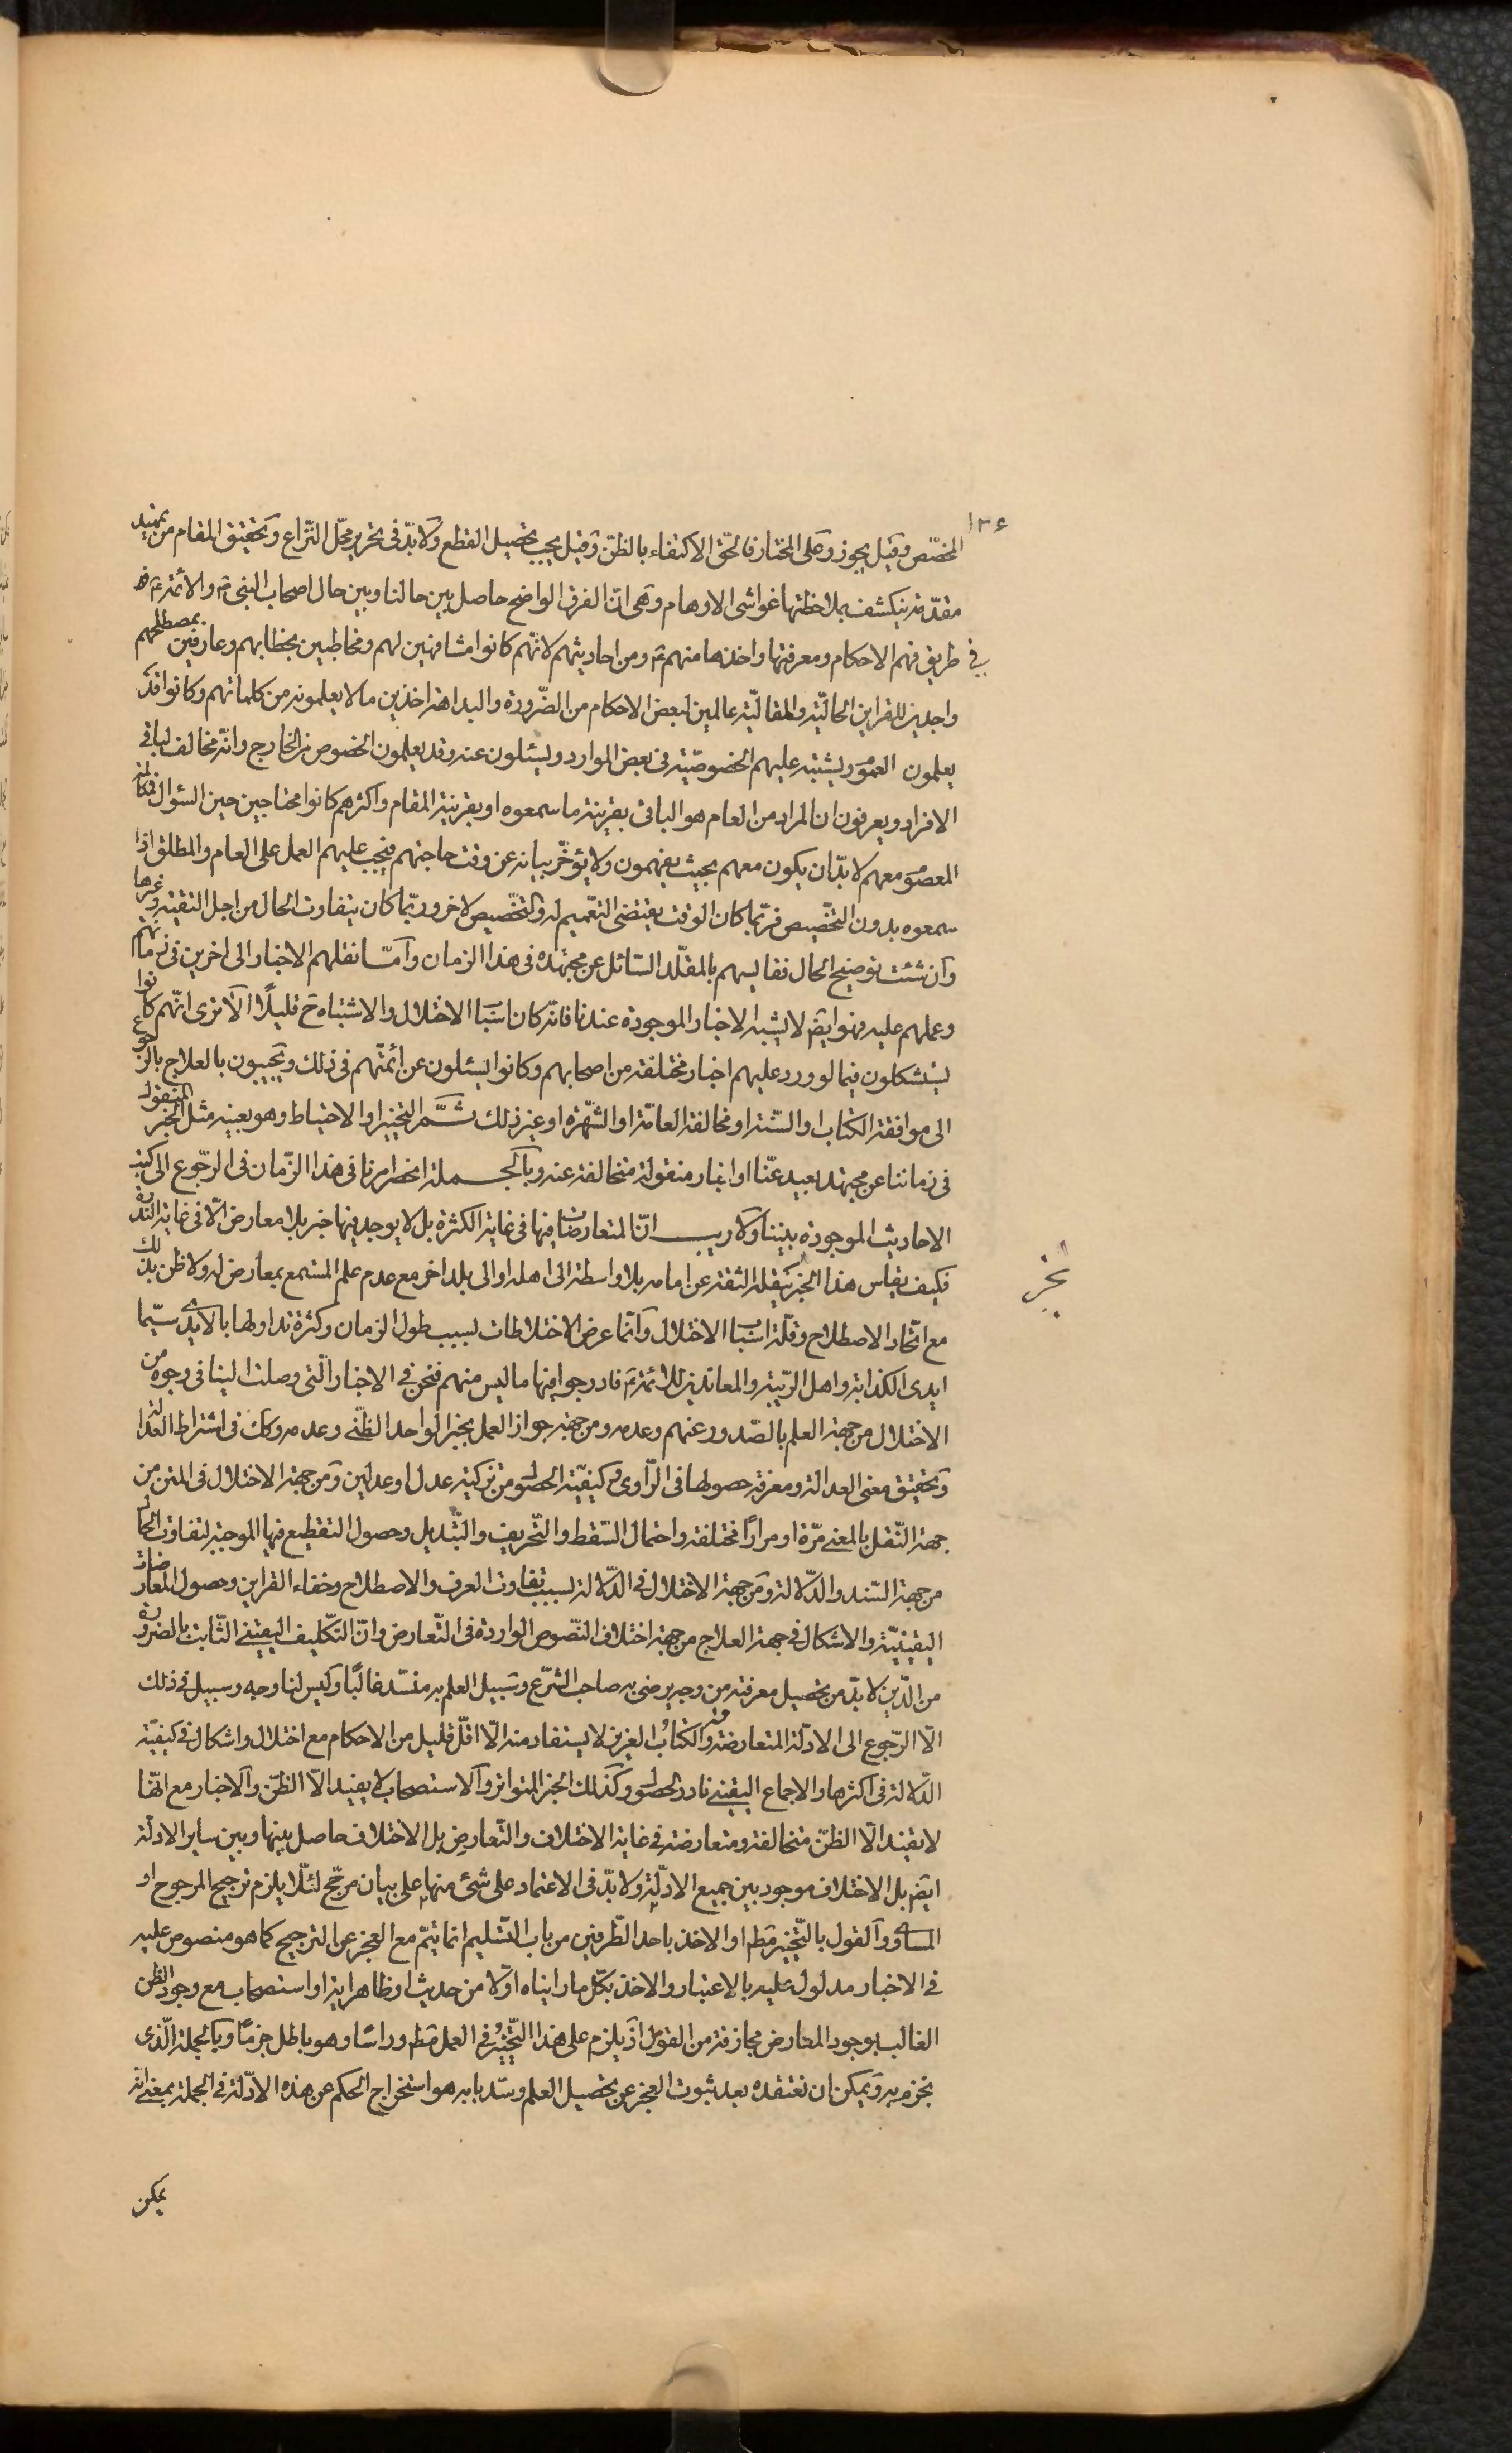 ١٣۶
المخصّص وقيل يجوز وعلى المختار فالحق الاكتفاء بالظنّ وقيل يجب تحصيل القطع ولا بدّ فى تحرير محلّ النّزاع وتحقيق المقام من تمهيد
مقدّمة ينكشف بملاحظتها غواشى الاوهام وهى انّ الفرق الواضح حاصل بين حالنا وبين حال اصحاب النبى ص والائمة ع
فى طريق فهم الاحكام ومعرفتها واخذها منهم ع ومن احاديثهم لانّهم كانوا مشافهين لهم ومخاطبين بخطابهم وعارفين بمصطلحهم
واجدين للقراين الحاليّة والمقاليّة عالمين لبعض الاحكام من الضّرورة والبداهة اخذين ما لا يعلمونه من كلماتهم وكانوا قد
يعلمون العموم ويشتبه عليهم الخصوصيّة فى بعض الموارد ويسئلون عنه وقد يعلمون الخصوص من الخارج وانّه مخالف لباقى
الافراد ويعرفون ان المراد من العام هو الباقى بقرينة ما سمعوه او بقرينة المقام واكثرهم كانوا محتاجين حين السئوال فكالمة
المعصوم معهم لا بدّ ان يكون معهم بحيث يفهمون ولا يؤخّر بيانه عن وقت حاجتهم فيجب عليهم العمل على العام والمطلق اذا
سمعوه بدون التخّصيص فربّما كان الوقت يقتضى التعّميم له والتخّصيص لاخر وربّما كان يتفاوت الحال من اجل التقيّة وغيرها
وان شئت توضيح الحال فقايسهم بالمقلّد السّائل عن مجتهده فى هذا الزمان وامّا نقلهم الاخبار الى اخرين فى زمانهم
وعملهم عليه فهو ايض لا يشبه الاخبار الموجودة عندنا فانّه كان اسباب الاختلال والاشتباه ح قليلًا الا ترى انّهم كانوا
يستشكلون فيما لو ورد عليهم اخبار مختلفة من اصحابهم وكانوا يسئلون عن ائمّتهم فى ذلك ويجيبون بالعلاج بالرجوع
الى موافقة الكتاب او السّنة او مخالفة العامّة او الشّهرة او غير ذلك ثمّ التخيير او الاحتياط وهو بعينه مثل الخبر المنقول
فى زماننا عن مجتهد بعيد عنّا او اخبار منقولة متخالفة عنه وبالجملة انحصر امرنا فى هذا الزّمان فى الرّجوع الى كتب
الاحاديث الموجودة بيننا ولا ريب انّ المتعارضات فيها فى غاية الكثرة بل لا يوجد فيها خبر بلا معارض الّا فى غاية النّدرة
فكيف يقاس هذا الخبر بنقله الثقة عن امامه بلا واسطة الى اهله او الى بلد اخر مع عدم علم المستمع بمعارض له ولا ظن بذلك
مع اتّحاد الاصطلاح وقلّة اسباب الاختلال وانّما عرض الاختلاطات بسبب طول الزمان وكثرة تداولها بالايدى سيّما
ايدى الكذابة واهل الرّيبة والمعاندين للائمّة ع فادرجوا فيها ما ليس منهم فنحن فى الاخبار الّتى وصلت الينا فى وجوه من
الاختلال من جهة العلم بالصّدور عنهم وعدمه ومن جهة جواز العمل بخبر الواحد الظنّى وعدمه وكك فى اشتراط العدالة
وتحقيق معنى العدالة ومعرفة حصولها فى الرّاوى وكيفيّة الحصول من تزكية عدل او عدلين ومن جهة الاختلال فى المتن من
جهة النّقل بالمعنى مرّة او مرارًا مختلفة واحتمال السّقط والتّحريف والتّبديل وحصول التقطيع فيها الموجبة لتفاوت الحال
من جهة السّند والدّلالة ومن جهة الاختلال فى الدّلالة لسبب تفاوت العرف والاصطلاح وخفاء القراين وحصول المعارضات
اليقينيّة والاشكال فى جهة العلاج من جهة اختلاف النّصوص الواردة فى التّعارض وانّ التكّليف اليقينى الثّابت بالضرورة
من الدّين لا بدّ من تحصيل معرفته من وجه يرضى به صاحب الشّرع وسبيل العلم به منسّد غالبًا وليس لنا وجه وسبيل فى ذلك
الّا الرّجوع الى الادلّة المتعارضة والكتاب العزيز لا يستفاد منه الّا اقلّ قليل من الاحكام مع اختلال واشكال فى كيفيّة
الدّلالة فى اكثرها والاجماع اليقينى نادر الحصول وكذلك الخبر المتواتر والاستصحاب لا يفيد الّا الظنّ والاخبار مع انّها
لا يفيد الّا الظنّ متخالفة ومتعارضة فى غاية الاختلاف والتّعارض بل الاختلاف حاصل بينها وبين ساير الادلّة
ايض بل الاختلاف موجود بين جميع الادلّة ولا بدّ فى الاعتماد على شىء منها على بيان مرجّح لئلّا يلزم ترجيح المرجوح او
المساوى والقول بالتّخيير مطم او الاخذ باحد الطّرفين من باب التّسليم انما يتمّ مع العجز عن الترجيح كما هو منصوص عليه
فى الاخبار مدلول عليه بالاعتبار والاخذ بكلّ ما رايناه اوّلا من حديث او ظاهر اية او استصحاب مع وجود الظن
الغالب بوجود المعارض مجازفة من القول اذ يلزم على هذا التّخيير فى العمل مطم وراسًا وهو باطل جزمًا وبالجملة الّذى
نجزم به ويمكن ان نعتقده بعد ثبوت العجز عن تحصيل العلم وسدّ بابه هو استخراج الحكم عن هذه الادّلة فى الجملة بمعنى انه
يمكن